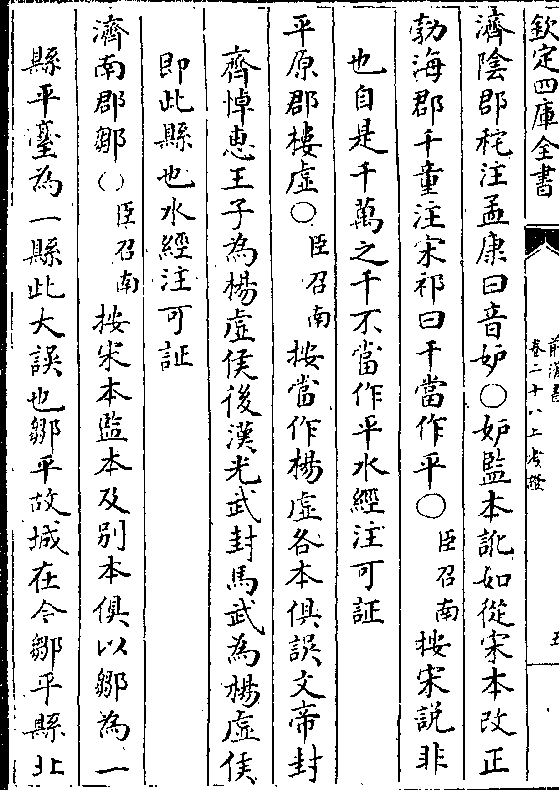 欽定四庫全書
前漢書
卷二十八上考證
五
濟陰郡秺注孟康曰音妒○妒監本訛如從宋本改正
勃海郡千童注宋祁曰千當作平○臣召南按宋説非
也自是千萬之千不當作平水經注可証
平原郡樓虛○臣召南按當作楊虛各本俱誤文帝封
齊悼惠王子為楊虛侯後漢光武封馬武為楊虛侯
即此縣也水經注可証
濟南郡鄒○臣召南按宋本監本及别本俱以鄒為一
縣平臺為一縣此大誤也鄒平故城在今鄒平縣北